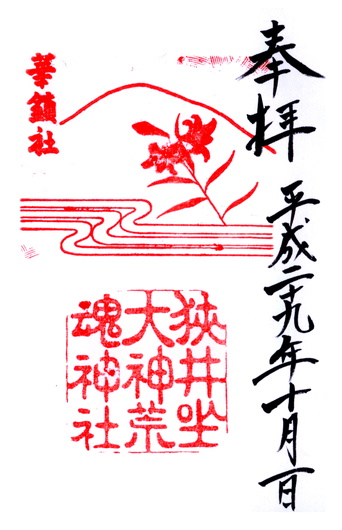 奉拝
平成二十九年十月一日
華鎮社
狭井坐
大神荒
魂神社